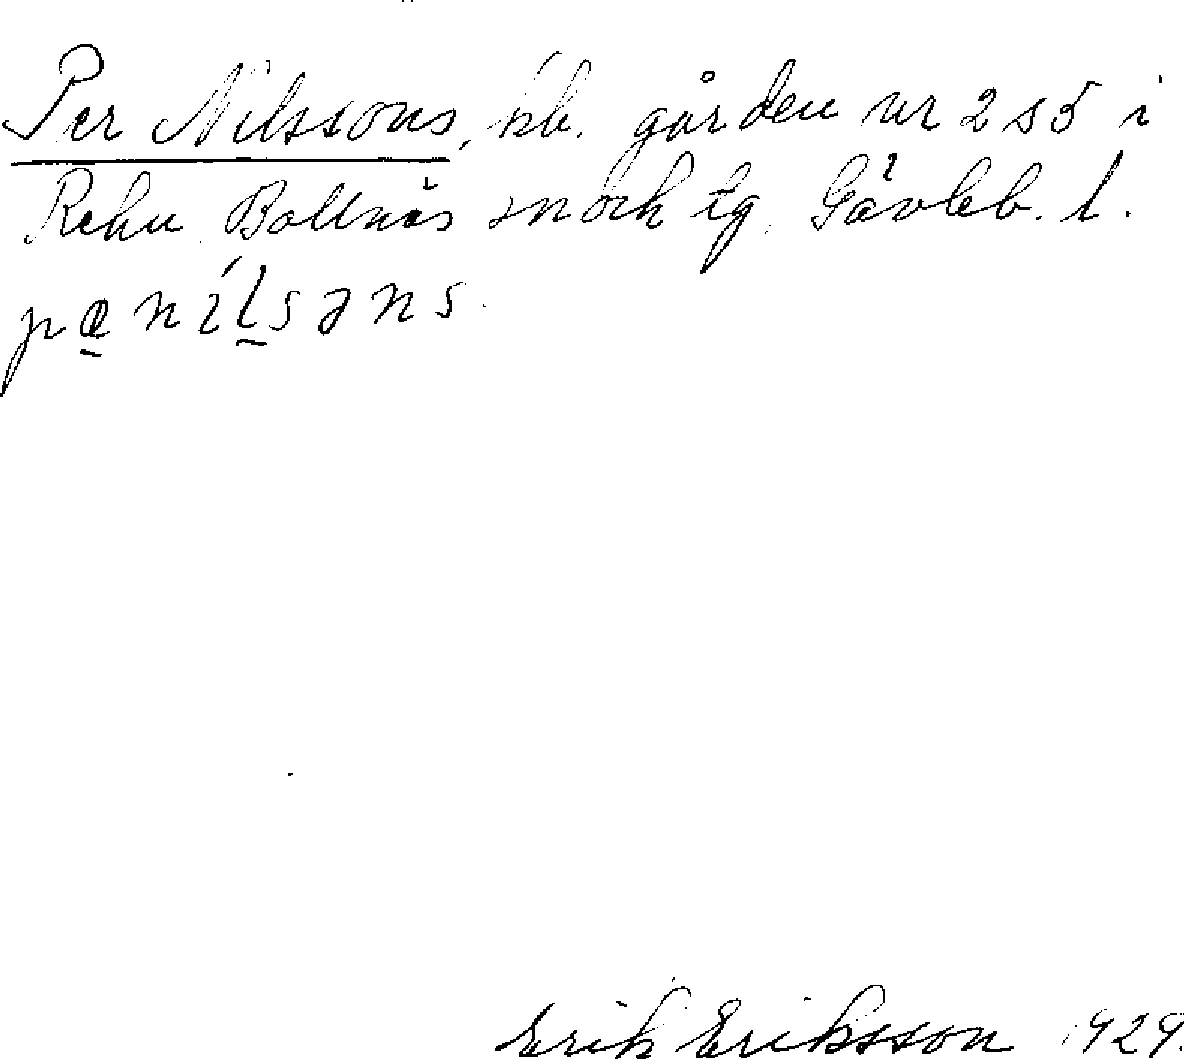 Per Nilssons, kb. gården nr 2 s 5 i
Rehn Bollnäs sn och tg, Gävleb. l.
pænílsəns.
Erik Eriksson 1929.